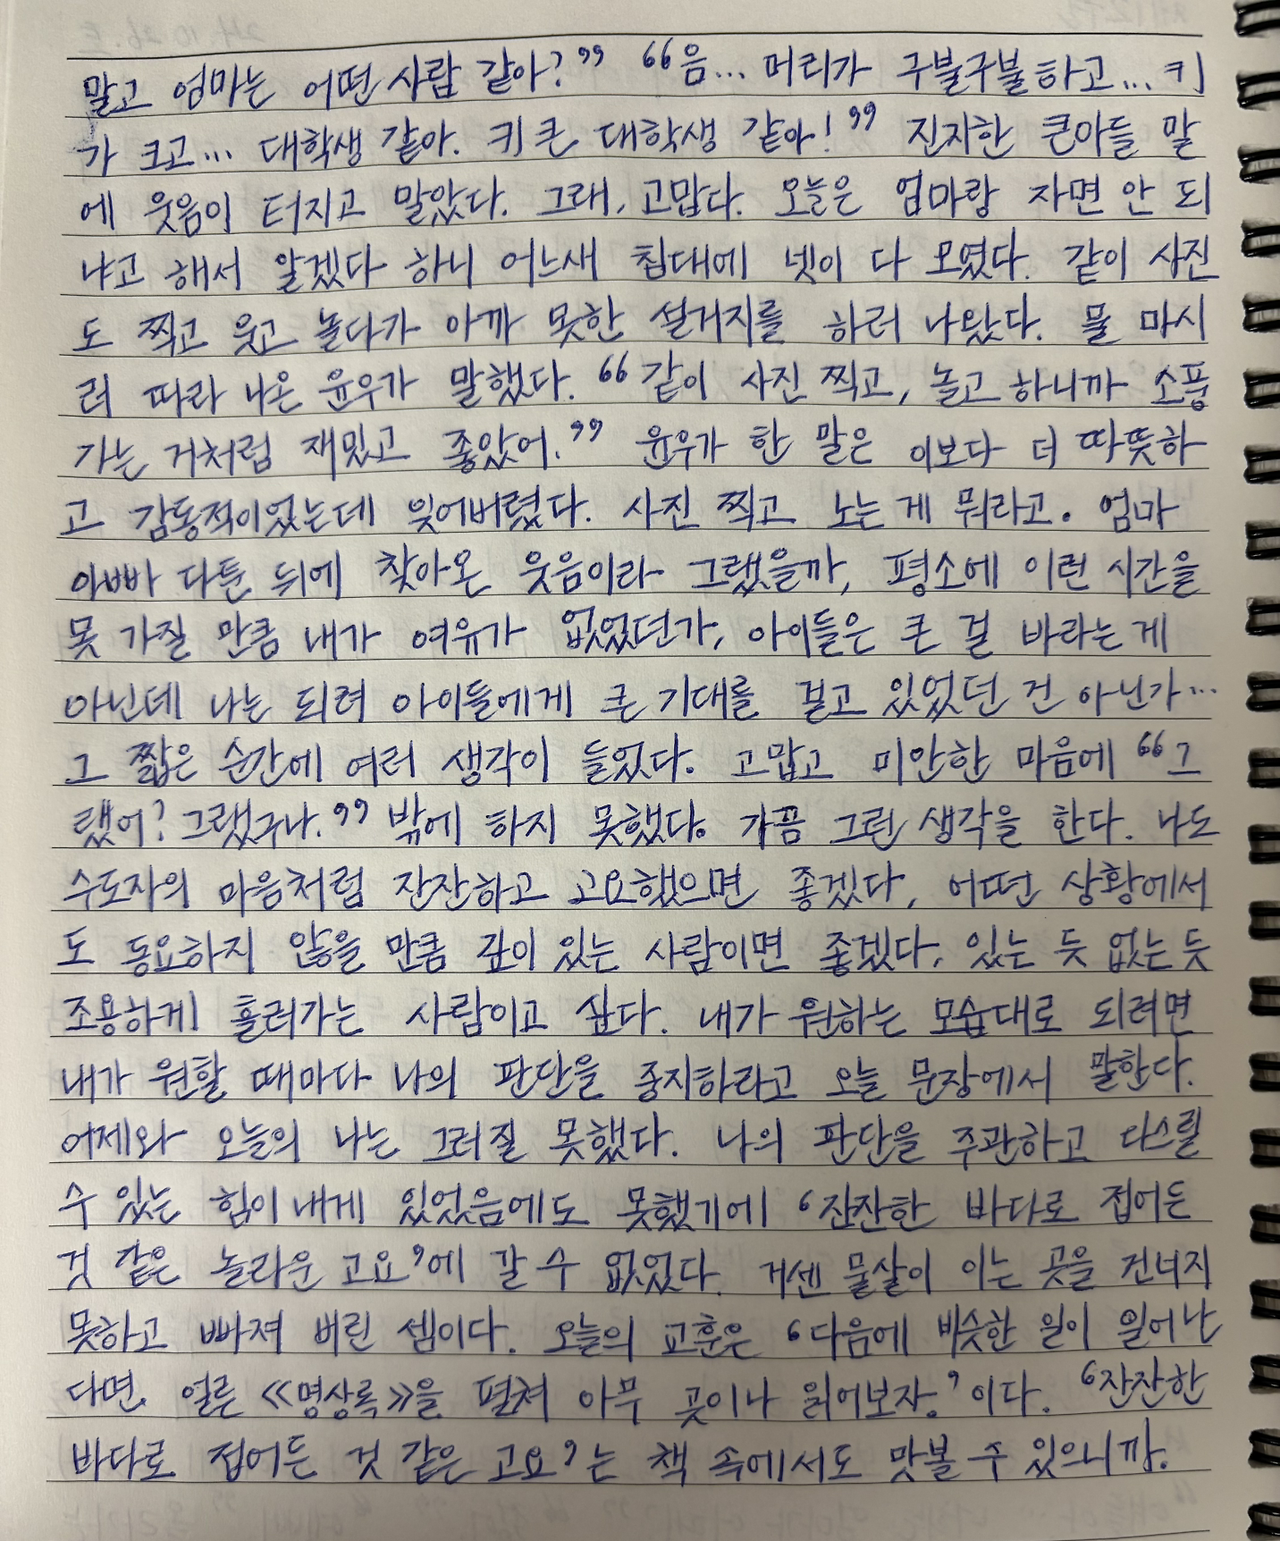 말고 엄마는 어떤 사람 같아?” “음... 머리가 구불구불하고... 키
가 크고... 대학생 같아. 키 큰 대학생 같아!” 진지한 큰아들 말
에 웃음이 터지고 말았다. 그래, 고맙다. 오늘은 엄마랑 자면 안 되
냐고 해서 알겠다 하니 어느새 침대에 넷이 다 모였다. 같이 사진
도 찍고 웃고 놀다가 아까 못한 설거지를 하러 나왔다. 물 마시
러 따라 나온 윤우가 말했다. “같이 사진 찍고, 놀고 하니까 소풍
가는 거처럼 재밌고 좋았어.” 윤우가 한 말은 이보다 더 따뜻하
고 감동적이었는데 잊어버렸다. 사진 찍고 노는 게 뭐라고. 엄마
아빠 다툰 뒤에 찾아온 웃음이라 그랬을까, 평소에 이런 시간을
못 가질 만큼 내가 여유가 없었던가, 아이들은 큰 걸 바라는 게
아닌데 나는 되려 아이들에게 큰 기대를 걸고 있었던 건 아닌가...
그 짧은 순간에 여러 생각이 들었다. 고맙고 미안한 마음에 “그
랬어? 그랬구나.” 밖에 하지 못했다. 가끔 그런 생각을 한다. 나도
수도자의 마음처럼 잔잔하고 고요했으면 좋겠다, 어떤 상황에서
도 동요하지 않을 만큼 깊이 있는 사람이면 좋겠다, 있는 듯 없는 듯
조용하게 흘러가는 사람이고 싶다. 내가 원하는 모습대로 되려면
내가 원할 때마다 나의 판단을 중지하라고 오늘 문장에서 말한다.
어제와 오늘의 나는 그러질 못했다. 나의 판단을 주관하고 다스릴
수 있는 힘이 내게 있었음에도 못했기에 ‘잔잔한 바다로 접어든
것 같은 놀라운 고요’에 갈 수 없었다. 거센 물살이 이는 곳을 건너지
못하고 빠져 버린 셈이다. 오늘의 교훈은 ‘다음에 비슷한 일이 일어난
다면, 얼른 《명상록》을 펼쳐 아무 곳이나 읽어보자.’이다. ‘잔잔한
바다로 접어든 것 같은 고요’는 책 속에서도 맛볼 수 있으니까.